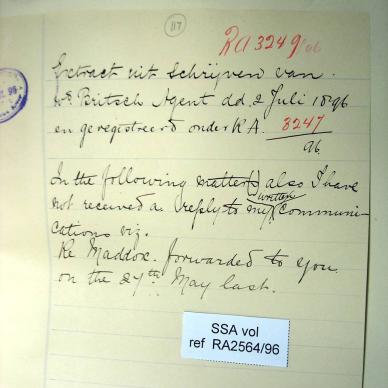 117
RA 3249/96
Extract uit Schrijven van
Britsch Agent dd. 2 Juli 1896
en geregistreerd onder R A. 3247/96
In the following matters also I have
not received a reply to my written Communi-
cations viz.
Re Maddox. forwarded to you
on the 27th May last.
SSA vol
ref RA2564/96